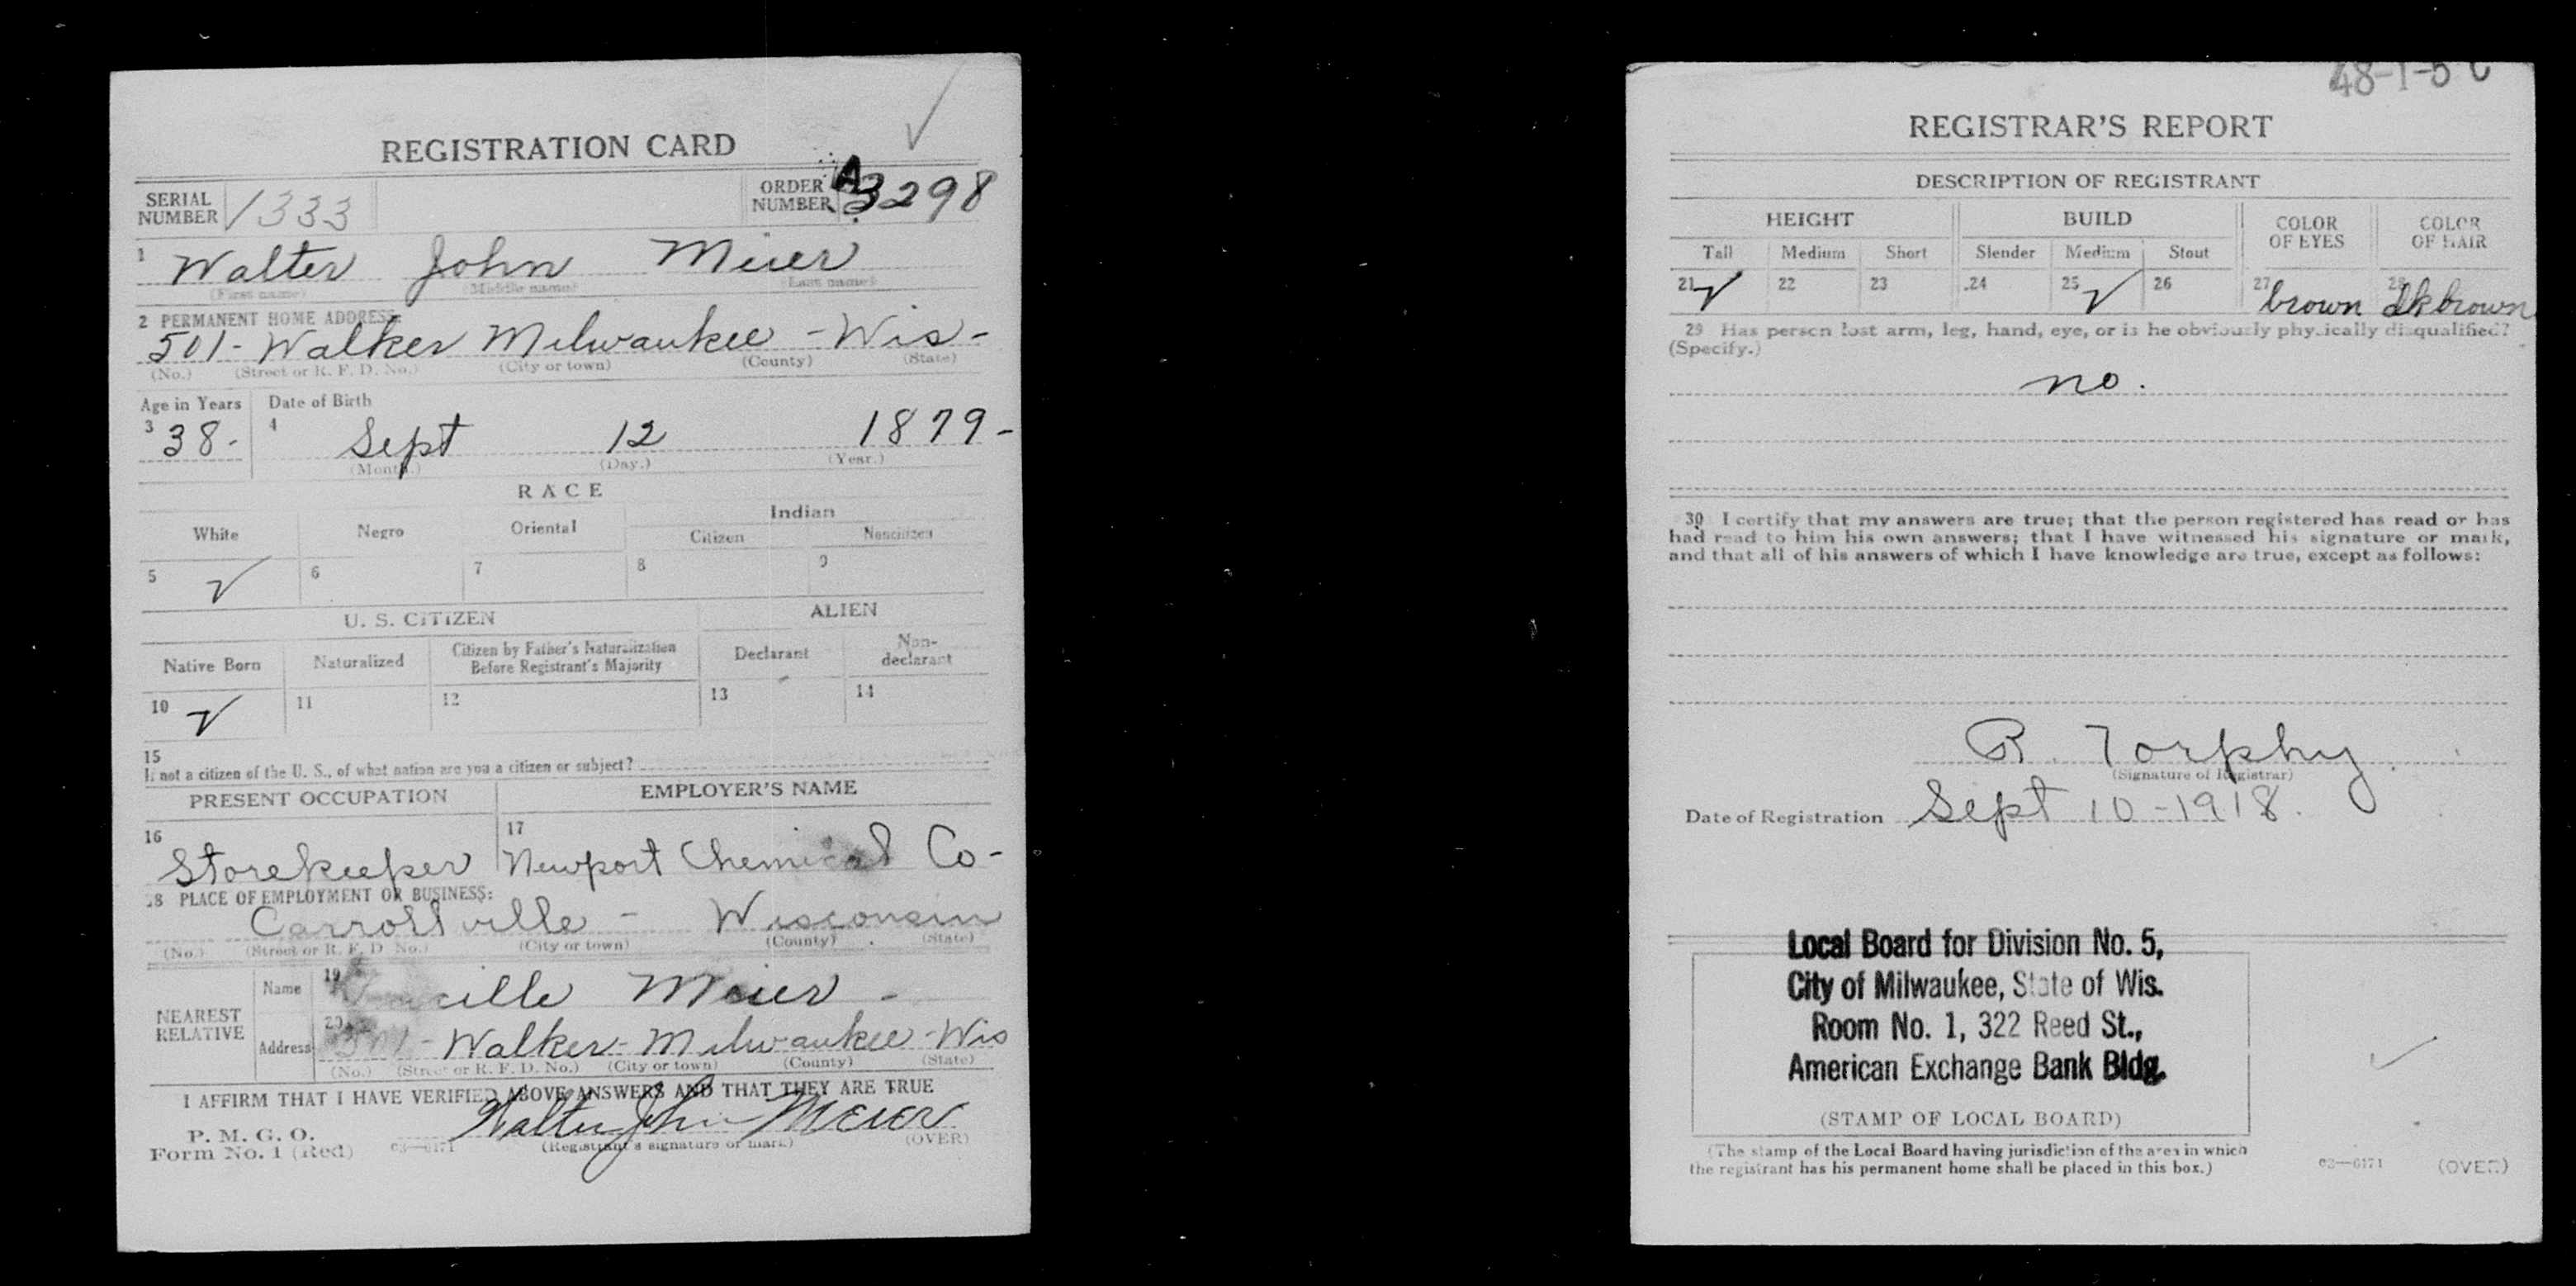 REGISTRATION CARD
SERIAL NUMBER 1333 ORDER NUMBER A3298
1 Walter John Meier
(First name) (Middle name) (Last name)
2 PERMANENT HOME ADDRESS:
501- Walker Milwaukee - Wis-
(No.) (Street or R. F. D. No.) (City or town) (County) (State)
Age in Years Date of Birth
3 38- 4 Sept 12 1879-
(Month.) (Day.) (Year.)
RACE
White Negro Oriental Indian
Citizen Noncitizen
5 ✓ 6 7 8 9
U. S. CITIZEN ALIEN
Native Born Naturalized Citizen by Father's Naturalization Before Registrant's Majority Declarant Non-declarant
10 ✓ 11 12 13 14
15
If not a citizen of the U. S., of what nation are you a citizen or subject?
PRESENT OCCUPATION EMPLOYER'S NAME
16 Storekeeper 17 Newport Chemical Co-
18 PLACE OF EMPLOYMENT OR BUSINESS:
Carrollville - Wisconsin
(No.) (Street or R. F. D. No.) (City or town) (County) (State)
NEAREST RELATIVE
Name 19 Meier -
Address 20 - Walker - Milwaukee - Wis
(No.) (Street or R. F. D. No.) (City or town) (County) (State)
I AFFIRM THAT I HAVE VERIFIED ABOVE ANSWERS AND THAT THEY ARE TRUE
P. M. G. O.
Form No. 1 (Red) 03—6171 Walter John Meier
(Registrant's signature or mark) (OVER)
48-1-5 C
REGISTRAR'S REPORT
DESCRIPTION OF REGISTRANT
HEIGHT BUILD COLOR OF EYES COLOR OF HAIR
Tall Medium Short Slender Medium Stout
21 ✓ 22 23 24 25 ✓ 26 27 brown 28 dk brown
29 Has person lost arm, leg, hand, eye, or is he obviously physically disqualified?
(Specify.)
no.
30 I certify that my answers are true; that the person registered has read or has
had read to him his own answers; that I have witnessed his signature or mark,
and that all of his answers of which I have knowledge are true, except as follows:
R. Torphy
(Signature of Registrar)
Date of Registration Sept 10-1918.
Local Board for Division No. 5,
City of Milwaukee, State of Wis.
Room No. 1, 322 Reed St.,
American Exchange Bank Bldg.
(STAMP OF LOCAL BOARD)
(The stamp of the Local Board having jurisdiction of the area in which
the registrant has his permanent home shall be placed in this box.)
03—6171 (OVER)